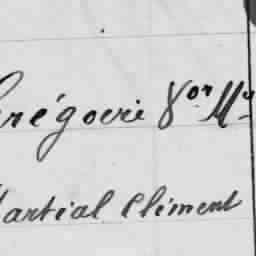 Grégoire Vor My
Martial Clément